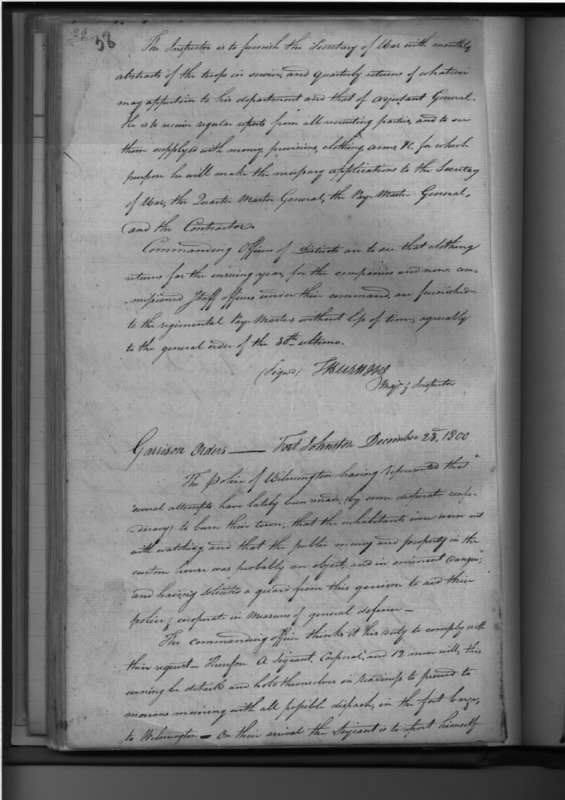 58
The Inspector is to furnish the Secretary of War with monthly
abstracts of the troops in service, and quarterly returns of whatever
may appertain to his department and that of Adjutant General.
He is to receive regular reports from all recruiting parties, and to see
them supplyed with money, provisions, clothing, arms, &c. for which
purpose he will make the necessary applications to the Secretary
of War, the Quarter Master General, the Pay Master General,
and the Contractors.
Commanding Officers of Districts are to see that clothing
returns for the ensuing year, for the companies and non com-
missioned Staff officers under their command, are furnished
to the regimental Pay Masters without loss of time, agreeably
to the general order of the 30th ultimo.
(Signed)
Majr. & Inspector
Garrison Orders — Fort Johnston December 23, 1800
The police of Wilmington having represented that "
several attempts have lately been made, (by some desperate confe-
deracy) to burn their town, that the inhabitants were worn out
with watching and that the public money and property in the
custom house was probably an object, and in eminent danger,"
and having solicited a guard from this garrison to aid their
police & cooperate in measures of general defence —
The commanding officer thinks it his duty to comply with
their request — Therefore A Serjeant, Corporal, and 12 men will, this
evening be detailed and hold themselves in readiness to proceed to
morrow morning with all possible dispatch, in the fort barge,
to Wilmington — On their arrival the Serjeant is to report himself